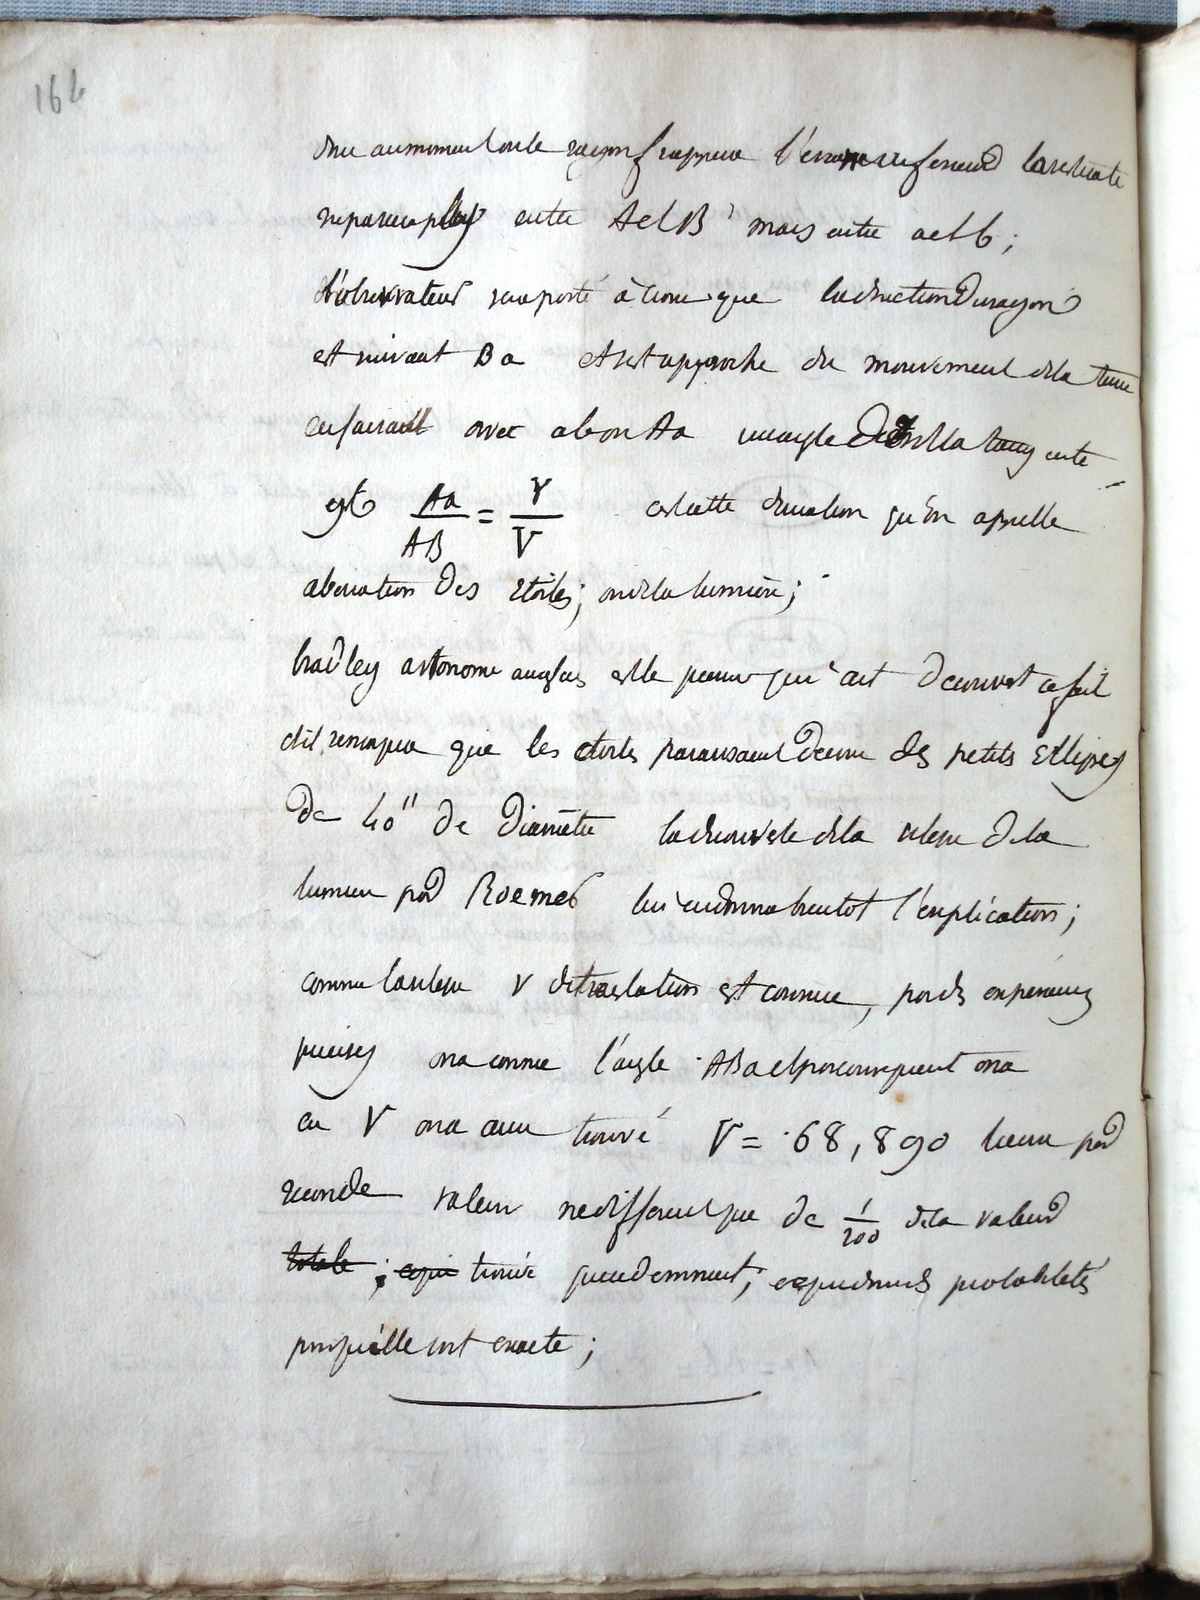 164
donc au moment ou le rayon frappera l'écran inferieur la
ne sera plus entre A et B mais entre a et b ;
et l'observateur sera porté à croire que la direction du rayon
est suivant Ba et s'est approché du mouvement de la terre
en faisant avec ab ou Aa un angle dont la tangente
est Aa/AB = v/V c'est cette deviation qu'on appelle
aberation des etoiles, ou de la lumière ;
bradley astronome anglais est le premier qui ait decouvert ce fait
et il remarqua que les etoiles paraissaient decrire des petits ellipses
de 40" de diamètre la decouverte de la vitesse de la
lumiere par Roemer lui en donna bientot l'explication ;
comme la vitesse v de translation est connue, par des experiences
precises on a connu l'angle ABa et par consequent on a
eu V on a ainsi trouvé V = 68,890 lieues par
seconde valeur ne differant que de 1/200 de la valeur
totale ; ce qui trouvée precedemment ; ce qui donne des probabilités
pour qu'elle soit exacte ;